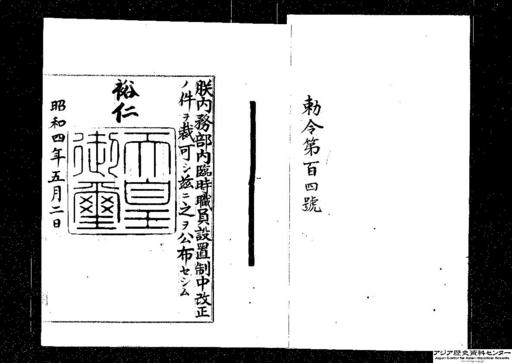 勅令第百四號
朕内務部内臨時職員設置制中改正
ノ件ヲ裁可シ茲ニ之ヲ公布セシム
裕仁
天皇
御璽
昭和四年五月二日
アジア歴史資料センター
Japan Center for Asian Historical Records